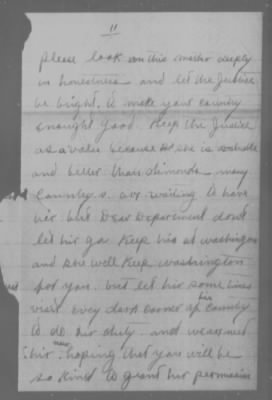 11
please look on this mather deeply
in honestness and let the Justice
be bright, to make your country
enought good. Keep the Justice
as a value because she is valuable
and better than dimonds. many
Countrys are waiting to have
her. but Dear Department dont
let hir go Keep him at washington
and she will Keep washington
for you. but let hir some times
visit evey dark corner of his country
to do hir duty. and we want
hir now hoping that you will be
so kind to grant hir permission